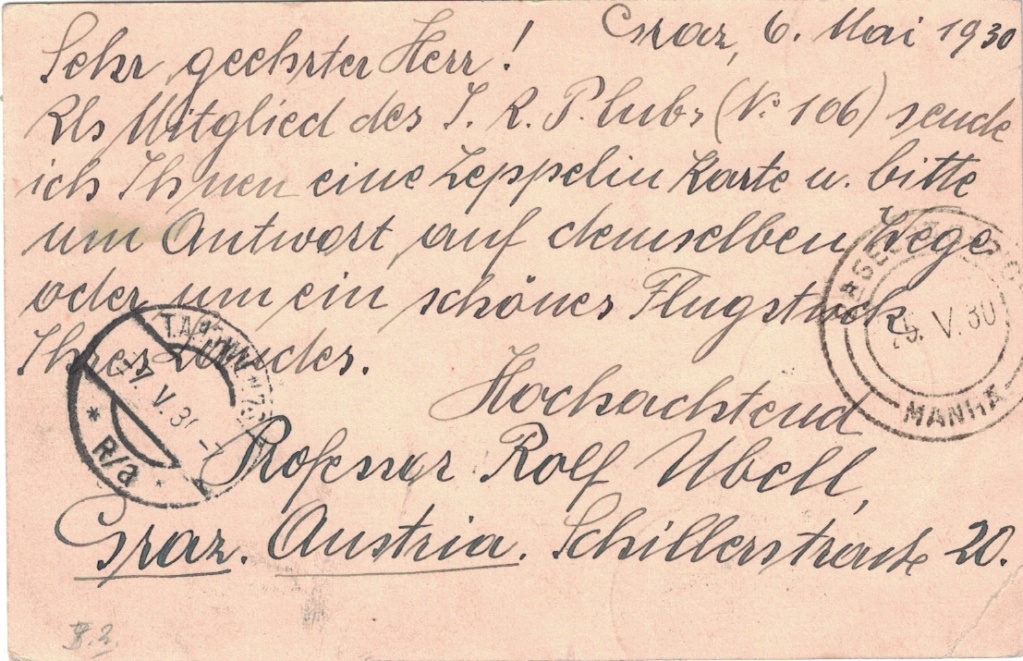 Graz, 6. Mai 1930
Sehr geehrter Herr!
Als Mitglied des I. R. P. lubs (No 106) sende
ich Ihnen eine Zeppelin Karte u. bitte
um Antwort auf demselben Wege
oder um ein schönes Flugstück
Ihres Landes.
Hochachtend
Professor Rolf Ubell,
Graz. Austria. Schillerstraße 20.
-7 V. 30
* R/a *
25. V. 30
MANHÃ